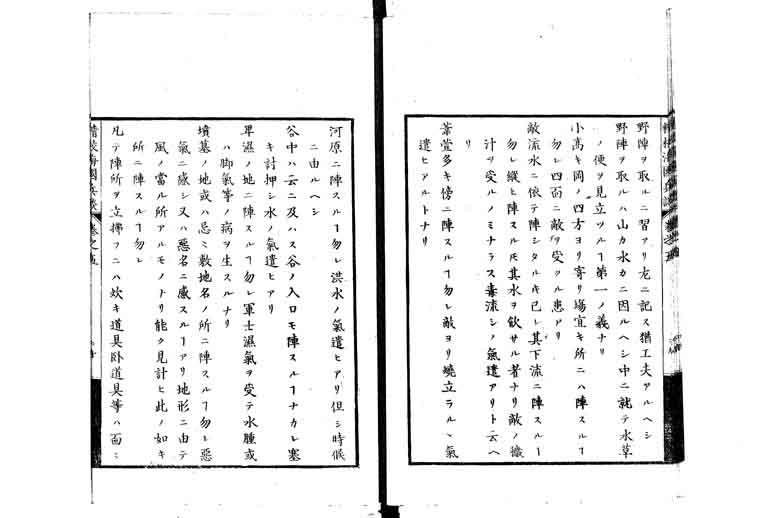 野陣ヲ取ルニ習アリ左ニ記ス猶工夫アルヘシ
野陣ヲ取ルハ山カ水カニ因ルヘシ中ニ就テ水草
ノ便ヲ見立ツルヿ第一ノ義ナリ
小高キ岡ノ四方ヨリ寄リ場宜キ所ニハ陣スルヿ
勿レ四面ニ敵ヲ受クル患アリ
敵流水ニ依テ陣シタルキ已レ其下流ニ陣スルヿ
勿レ縦ヒ陣スルモ其水ヲ飲サル者ナリ敵ノ
汁ヲ受ルノミナラス毒流シノ氣遣アリト云ヘ
リ
葦萱多キ傍ニ陣スルヿ勿レ敵ヨリ燒立ラルヽ氣
遣ヒアルトナリ
河原ニ陣スルヿ勿レ洪水ノ氣遣ヒアリ但シ時候
ニ由ルヘシ
谷中ハ云ニ及ハス谷ノ入口モ陣スルヿナカレ塞
キ討押シ水ノ氣遣ヒアリ
卑濕ノ地ニ陣スルヿ勿レ軍士濕氣ヲ受テ水腫或
ハ脚氣等ノ病ヲ生スルナリ
墳墓ノ地或ハ忌ミ敷地名ノ所ニ陣スルヿ勿レ惡
氣ニ感シ又ハ惡名ニ感スルヿアリ地形ニ由テ
風ノ當ル所アルモノナリ能ク見計ヒ此ノ如キ
所ニ陣スルヿ勿レ
凡テ陣所ヲ立拂フニハ炊キ道具臥道具等ハ面ニ
海國兵談 卷之五